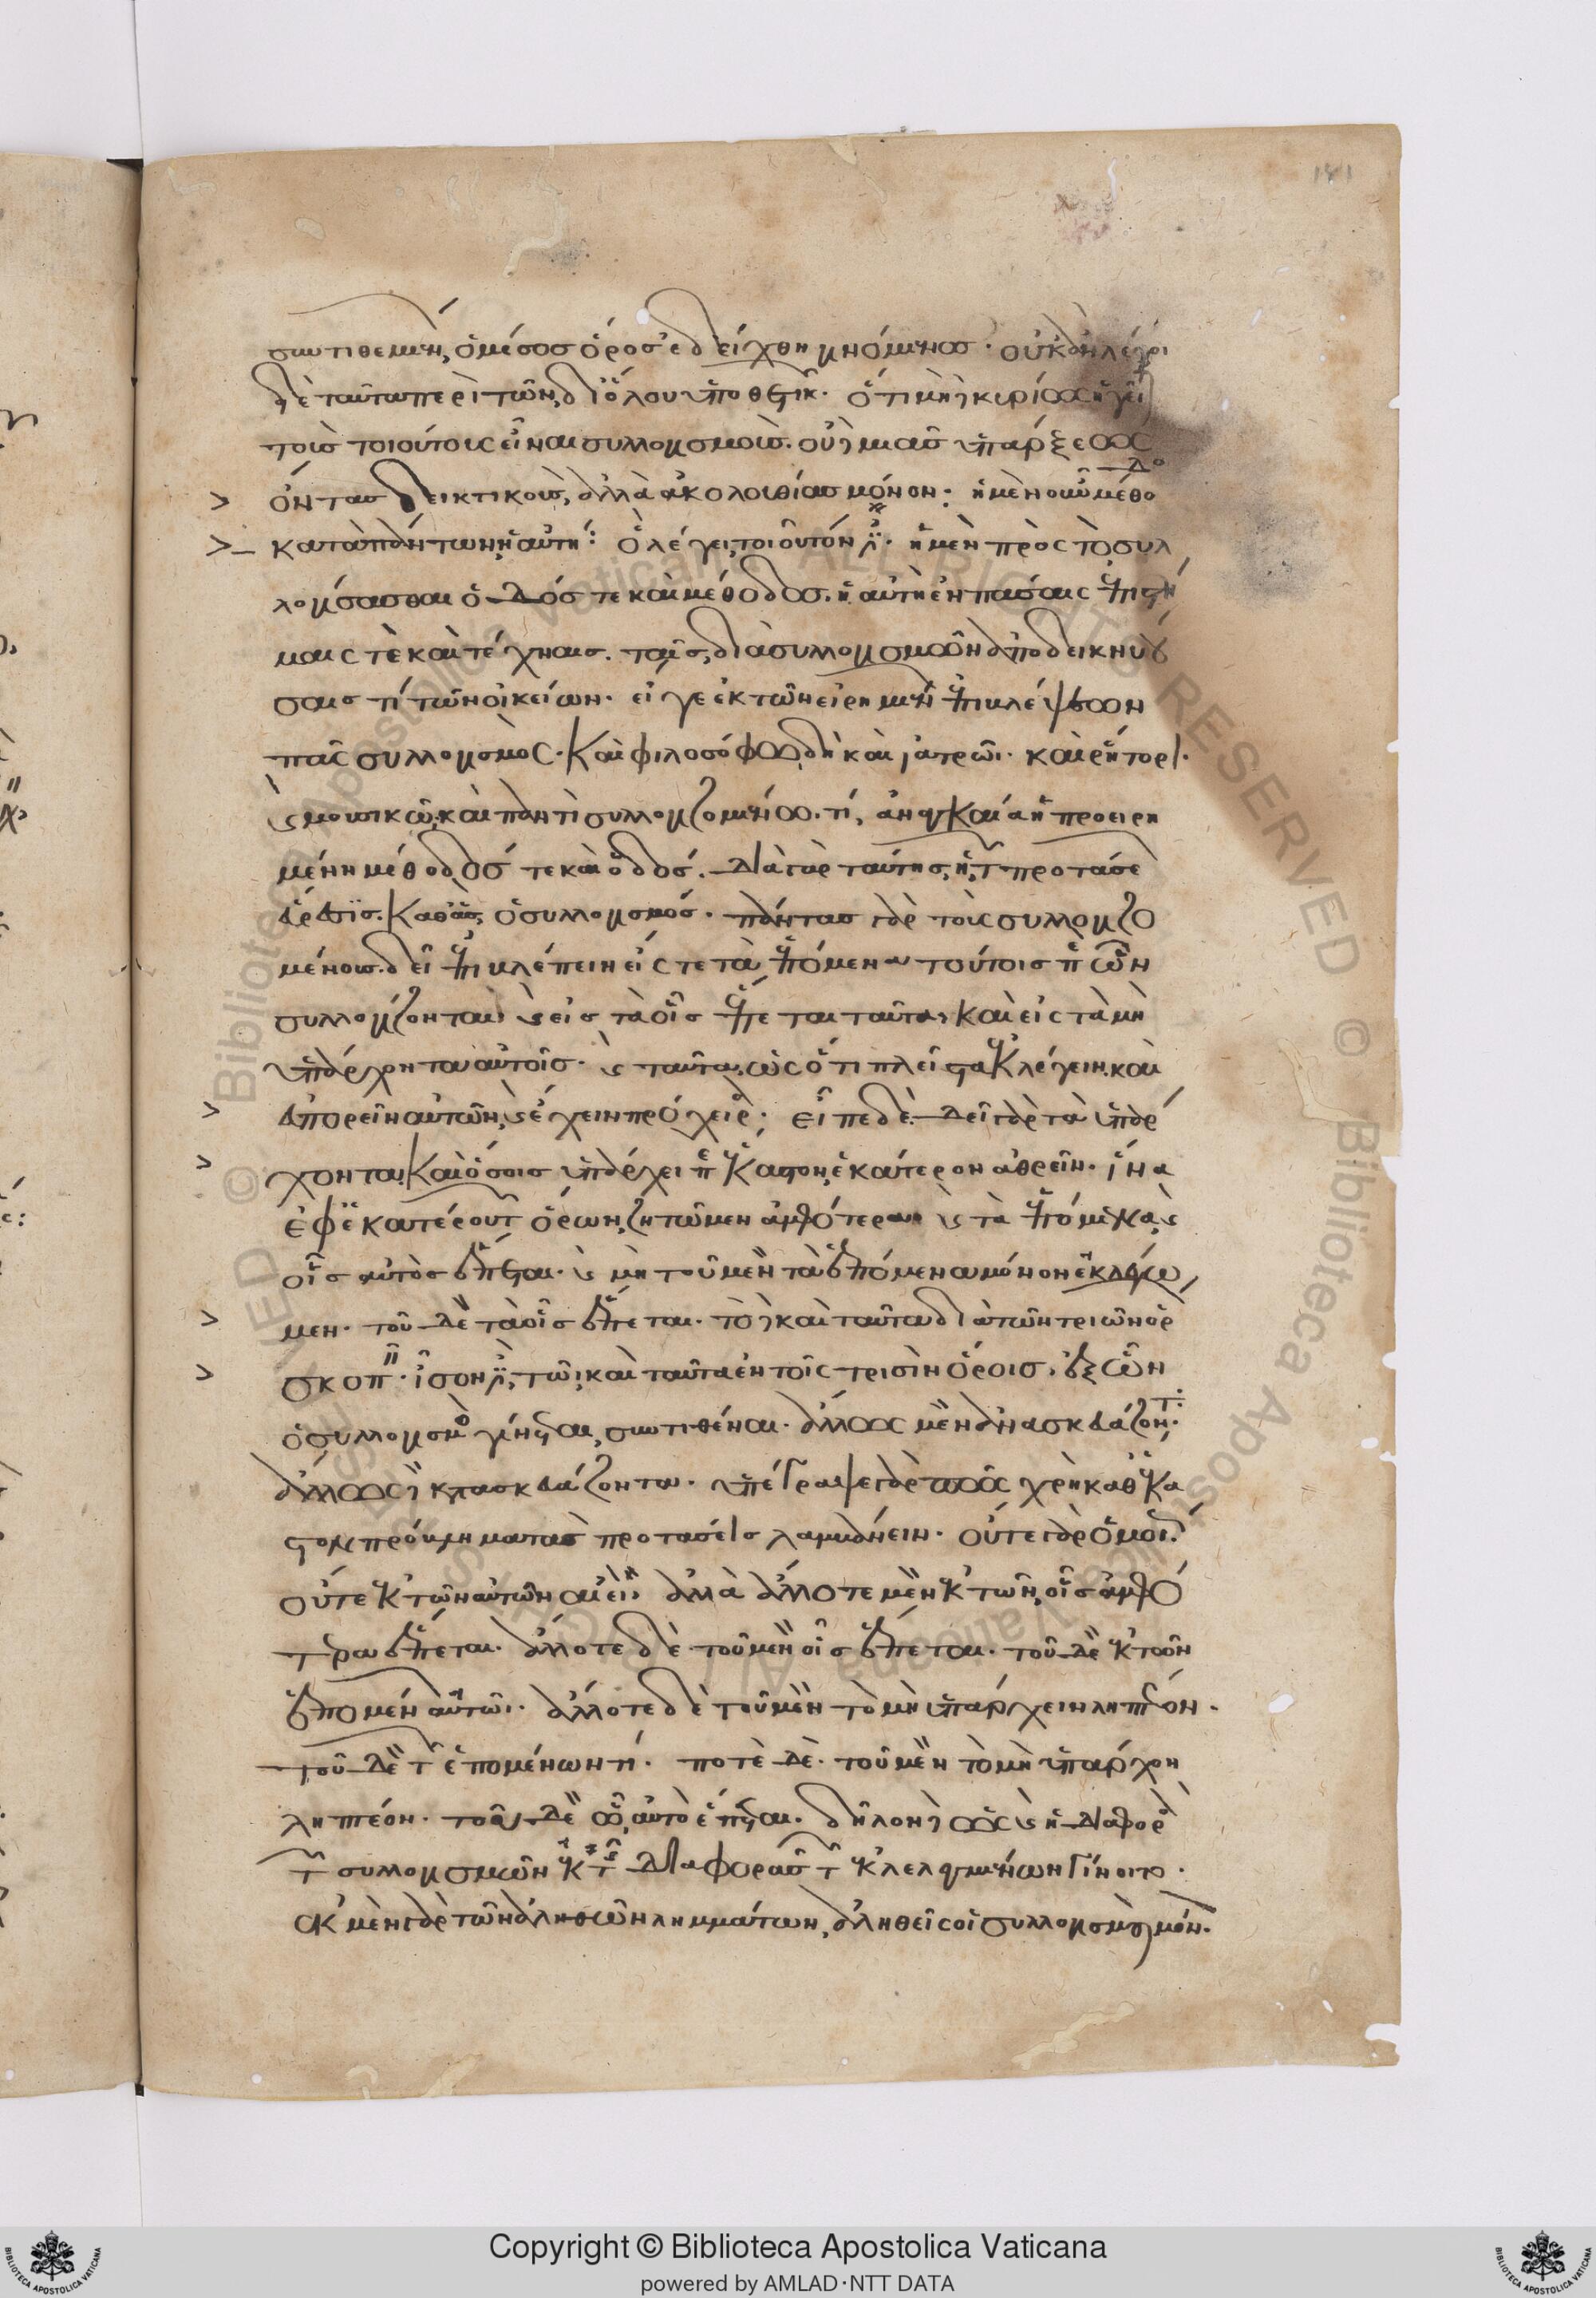 συντιθεμένων, ὁ μέσος ὅρος ἐδείχθη γινόμενος· οὐκ ἂν λέγοι
δὲ ταῦτα περὶ τῶν δι' ὅλου ὑποθετικῶν· ὅτι μηδὲ κυρίως ἡγεῖ
τοὺς τοιούτους εἶναι συλλογισμούς. οὐδεμιᾶς ὑπάρξεως
ὄντας δεικτικούς, ἀλλὰ ἀκολουθίας μόνον· ἡ μὲν οὖν μέθοδο
κατὰ πάντων ἡ αὐτή: ὃ λέγει, τοιοῦτόν ἐστιν· ἡ μὲν πρὸς τὸ συλ
λογίσασθαι ὁδός τε καὶ μέθοδος. ἡ αὐτὴ ἐν πάσαις ἐπιστή
μαις τὲ καὶ τέχναις. ταῖς διὰ συλλογισμῶν ἀποδεικνυού
σαις τί τῶν οἰκείων· εἴ γε ἐκ τῶν εἰρημένων ἐπιβλέψεων
πᾶς συλλογισμός· καὶ φιλοσόφῳ δὴ καὶ ἰατρῶι· καὶ ῥήτορι·
καὶ μουσικῶι, καὶ παντὶ συλλογιζομένῳ τί, ἀναγκαία ἡ προειρη
μένη μέθοδός τε καὶ ὁδός. διὰ γὰρ ταύτης, ἡ τῶν προτάσεων
εὕρεσις. καθ' ἃς, ὁ συλλογισμός· πάντας γὰρ τοὺς συλλογιζο
μένους δεῖ ἐπιβλέπειν εἴς τε τὰ ἑπόμενα τούτοις περὶ ὧν
συλλογίζονται, καὶ εἰς τὰ οἷς ἕπεται ταῦτα, καὶ εἰς τὰ μὴ
ὑπάρχοντα αὐτοῖς· καὶ ταῦτα, ὡς ὅτι πλεῖστα ἐκλέγειν, καὶ
εὐπορεῖν αὐτῶν, καὶ ἔχειν πρόχειρα· εἶπε δὲ. δεῖ γὰρ τὰ ὑπάρ
χοντα, καὶ ὅσοις ὑπάρχει περὶ ἕκαστον, ἑκάτερον ἀθρεῖν· ἵνα
ἐφ' ἑκατέρου τῶν ὅρων, ζητῶμεν ἀμφότερα καὶ τὰ ἑπόμενα, καὶ
οἷς αὐτὸς ἕπεται· καὶ μὴ τοῦ μὲν τὰ ἑπόμενα μόνον ἐκλέγω
μεν· τοῦ δὲ τὰ οἷς ἕπεται. τὸ δὲ καὶ ταῦτα διὰ τῶν τριῶν ὅρων
σκοπεῖν· ἴσον ἐστὶ, τῶι, καὶ ταῦτα ἐν τοῖς τρισὶν ὅροις, ἐξ ὧν
ὁ συλλογισμὸς γίνεται, συντιθέναι. ἄλλως μὲν ἀνασκευάζοντα·
ἄλλως δὲ κατασκευάζοντα· ὑπέγραψε γὰρ πῶς χρὴ καθ' ἕκα
στον πρόβλημα τὰς προτάσεις λαμβάνειν· οὔτε γὰρ ὁμοίως
οὔτε ἐκ τῶν αὐτῶν ἀεί· ἀλλὰ ἄλλοτε μὲν ἐκ τῶν, οἷς ἀμφό
τερα ἕπεται· ἄλλοτε δὲ τοῦ μὲν οἷς ἕπεται· τοῦ δὲ ἐκ τῶν
ἑπομένων αὐτῶι· ἄλλοτε δὲ τοῦ μὲν τὸ μὴ ὑπάρχειν ληπτέον·
τοῦ δὲ τῶν ἑπομένων τί· ποτὲ δὲ τοῦ μὲν τὸ μὴ ὑπάρχον
ληπτέον· τοῦ δὲ ᾧ, αὐτὸ ἕπεται. δῆλον δὲ ὡς καὶ ἡ διαφορὰ
τῶν συλλογισμῶν ἐκ τῆς διαφορᾶς τῶν ἐκλελεγμένων γίνοιτο·
ἐκ μὲν γὰρ τῶν ἀληθῶν λημμάτων, ἀληθεῖς οἱ συλλογισμοὶ μόνων·